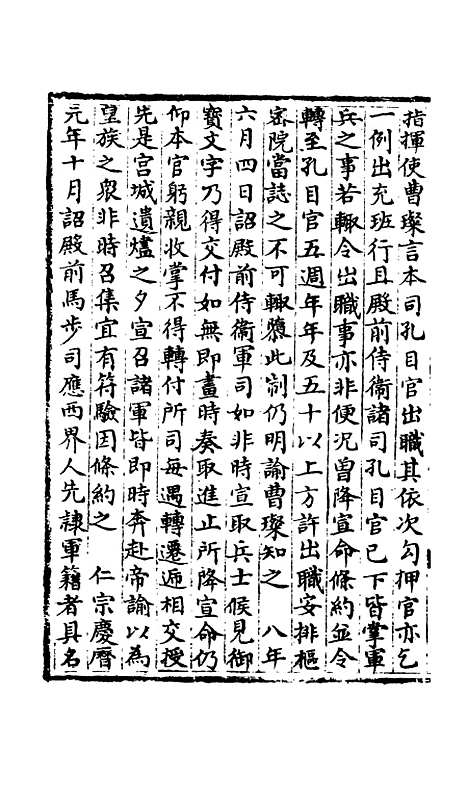 指揮使曹璨言本司孔目官出職其依次勾押官亦乞
一例出充班行且殿前侍衛諸司孔目官已下皆掌軍
兵之事若輙令出職事亦非便况曾降宣命條約並令
轉至孔目官五週年年及五十以上方許出職安排樞
密院當誌之不可輙隳此制仍明諭曹璨知之　八年
六月四日詔殿前侍衞軍司如非時宣取兵士候見御
寳文字乃得交付如無即畫時奏取進止所降宣命仍
仰本官躬親收掌不得轉付所司每遇轉遷逓相交授
先是宮城遺燼之夕宣召諸軍皆即時奔赴帝諭以為
望族之衆非時召集宜有符驗因條約之　仁宗慶曆
元年十月詔殿前馬步司應西界人先隷軍籍者具名